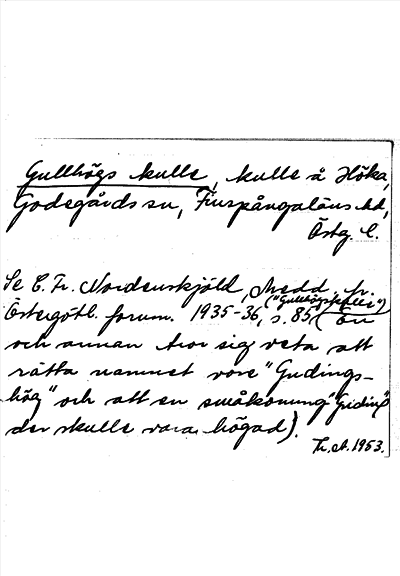 Gullhögs kulle, kulle å Höka,
Godegårds sn, Finspångaläns hd,
Östg. l.
Se C. Fr. Nordenskjöld, Medd. fr.
Östergötl. fornm. 1935-36, s. 85 ("Gullhögskulle") (En
och annan tror sig veta att
rätta namnet vore "Gudings-
hög" och att en småkonung "Guding"
der skulle vara högad).
Tr. A. 1953.